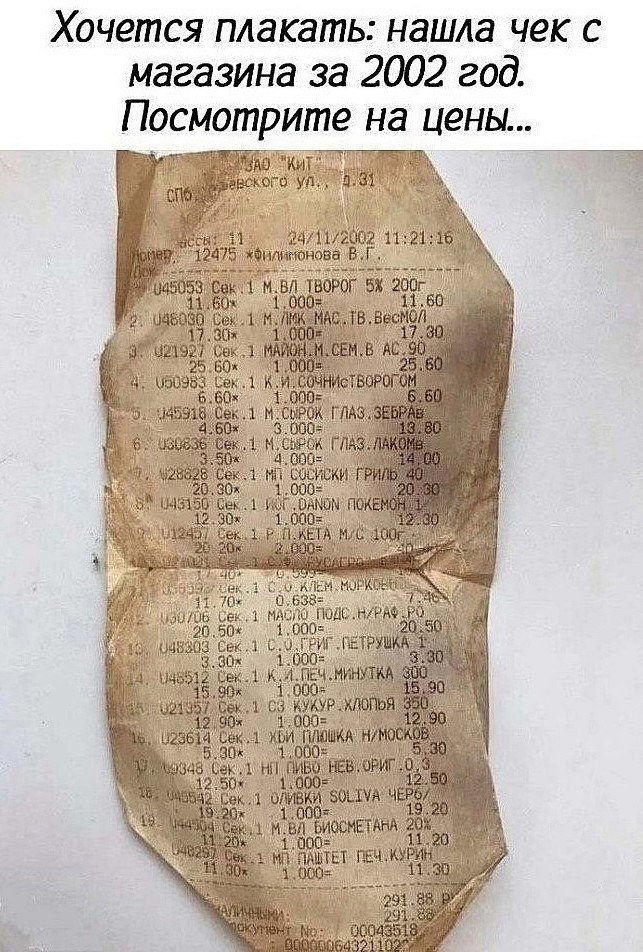 Хочется плакать: нашла чек с
магазина за 2002 год.
Посмотрите на цены...
ЗАО "КИТ"
СПб, ул., д.31
11 24/11/2002 11:21:16
12475 *Филимонова В.Г.
U45053 Сек.1 М.ВЛ ТВОРОГ 5% 200г
11.60* 1.000= 11.60
2. U46030 Сек.1 М.ЛМК МАС.ТВ.ВесМОЛ
17.30* 1.000= 17.30
3. U21927 Сек.1 МАЙОН.М.СЕМ.В АС.90
25.60* 1.000= 25.60
4. U50983 Сек.1 К.И.СОЧНИсТВОРОГОМ
6.60* 1.000= 6.60
5. U45918 Сек.1 М.СЫРОК ГЛАЗ.ЗЕБРАв
4.60* 3.000= 13.80
6. U30836 Сек.1 М.СЫРОК ГЛАЗ.ЛАКОМв
3.50* 4.000= 14.00
7. U28828 Сек.1 МП СОСИСКИ ГРИЛЬ 40
20.30* 1.000= 20.30
8. U43150 Сек.1 ЙОГ.DANON ПОКЕМОН 1
12.30* 1.000= 12.30
9. U12457 Сек.1 Р П.КЕТА М/С 100г
20.20* 2.000=
17.40* 0.595=
Сек.1 С.О.КЛЕМ.МОРКОВЬ
11.70* 0.638= 7.46
U30706 Сек.1 МАСЛО ПОДС.Н/РАФ.РО
20.50* 1.000= 20.50
13. U48303 Сек.1 С.О.ГРИГ.ПЕТРУШКА 1
3.30* 1.000= 3.30
14. U48512 Сек.1 К.И.ПЕЧ.МИНУТКА 300
15.90* 1.000= 15.90
15. U21357 Сек.1 СЗ КУКУР.ХЛОПЬЯ 350
12.90* 1.000= 12.90
16. U23614 Сек.1 ХБИ ПЛЮШКА Н/МОСКОВ
5.30* 1.000= 5.30
17. U9348 Сек.1 НП ПИВО НЕВ.ОРИГ.0,3
12.50* 1.000= 12.50
18. U45542 Сек.1 ОЛИВКИ SOLIVA ЧЕРБ/
19.20* 1.000= 19.20
19. U44504 Сек.1 М.ВЛ БИОСМЕТАНА 20%
11.20* 1.000= 11.20
U48297 Сек.1 МП ПАШТЕТ ПЕЧ.КУРИН
11.30* 1.000= 11.30
291.88
НАЛИЧНЫМИ: 291.88
Документ No: 00043518